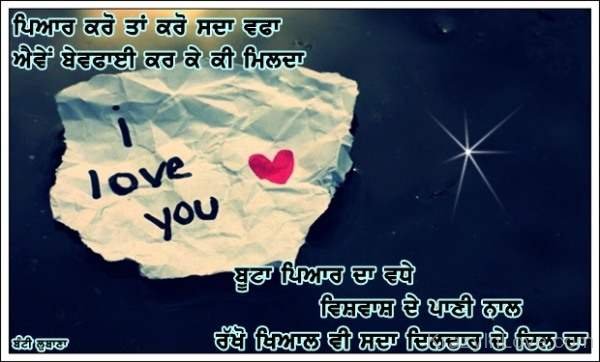 ਪਿਆਰ ਕਰੋ ਤਾਂ ਕਰੋ ਸਦਾ ਵਫਾ
ਐਵੇਂ ਬੇਵਫਾਈ ਕਰ ਕੇ ਕੀ ਮਿਲਦਾ
i
love
you
ਬੂਟਾ ਪਿਆਰ ਦਾ ਵਧੇ
ਵਿਸ਼ਵਾਸ਼ ਦੇ ਪਾਣੀ ਨਾਲ
ਰੱਖੋ ਖਿਆਲ ਵੀ ਸਦਾ ਦਿਲਦਾਰ ਦੇ ਦਿਲ ਦਾ
ਬੰਟੀ ਲੁਬਾਣਾ